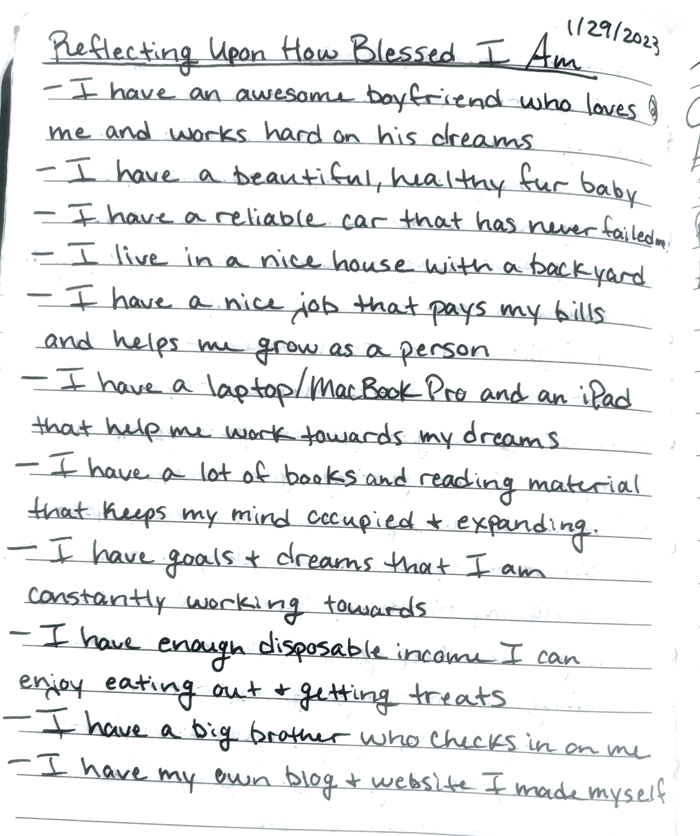 1/29/2023
Reflecting Upon How Blessed I Am
- I have an awesome boyfriend who loves
me and works hard on his dreams
- I have a beautiful, healthy fur baby
- I have a reliable car that has never failed me
- I live in a nice house with a backyard
- I have a nice job that pays my bills
and helps me grow as a person
- I have a laptop/MacBook Pro and an iPad
that help me work towards my dreams
- I have a lot of books and reading material
that keeps my mind occupied + expanding.
- I have goals + dreams that I am
constantly working towards
- I have enough disposable income I can
enjoy eating out + getting treats
- I have a big brother who checks in on me
- I have my own blog + website I made myself